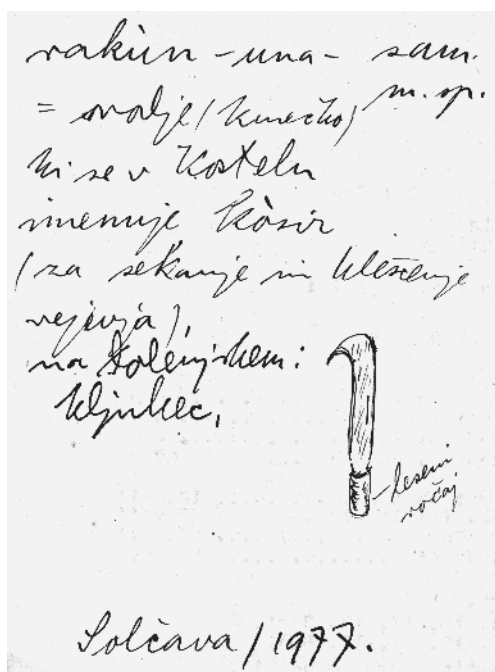 rakun -una- sam.
m. sp.
= orodje (kmečko)
ki se v Kostelu
imenuje kòsir
(za sekanje in kleščenje
vejevja),
na Dolenjskem:
kljukec,
leseni
ročaj
Solčava / 1977.